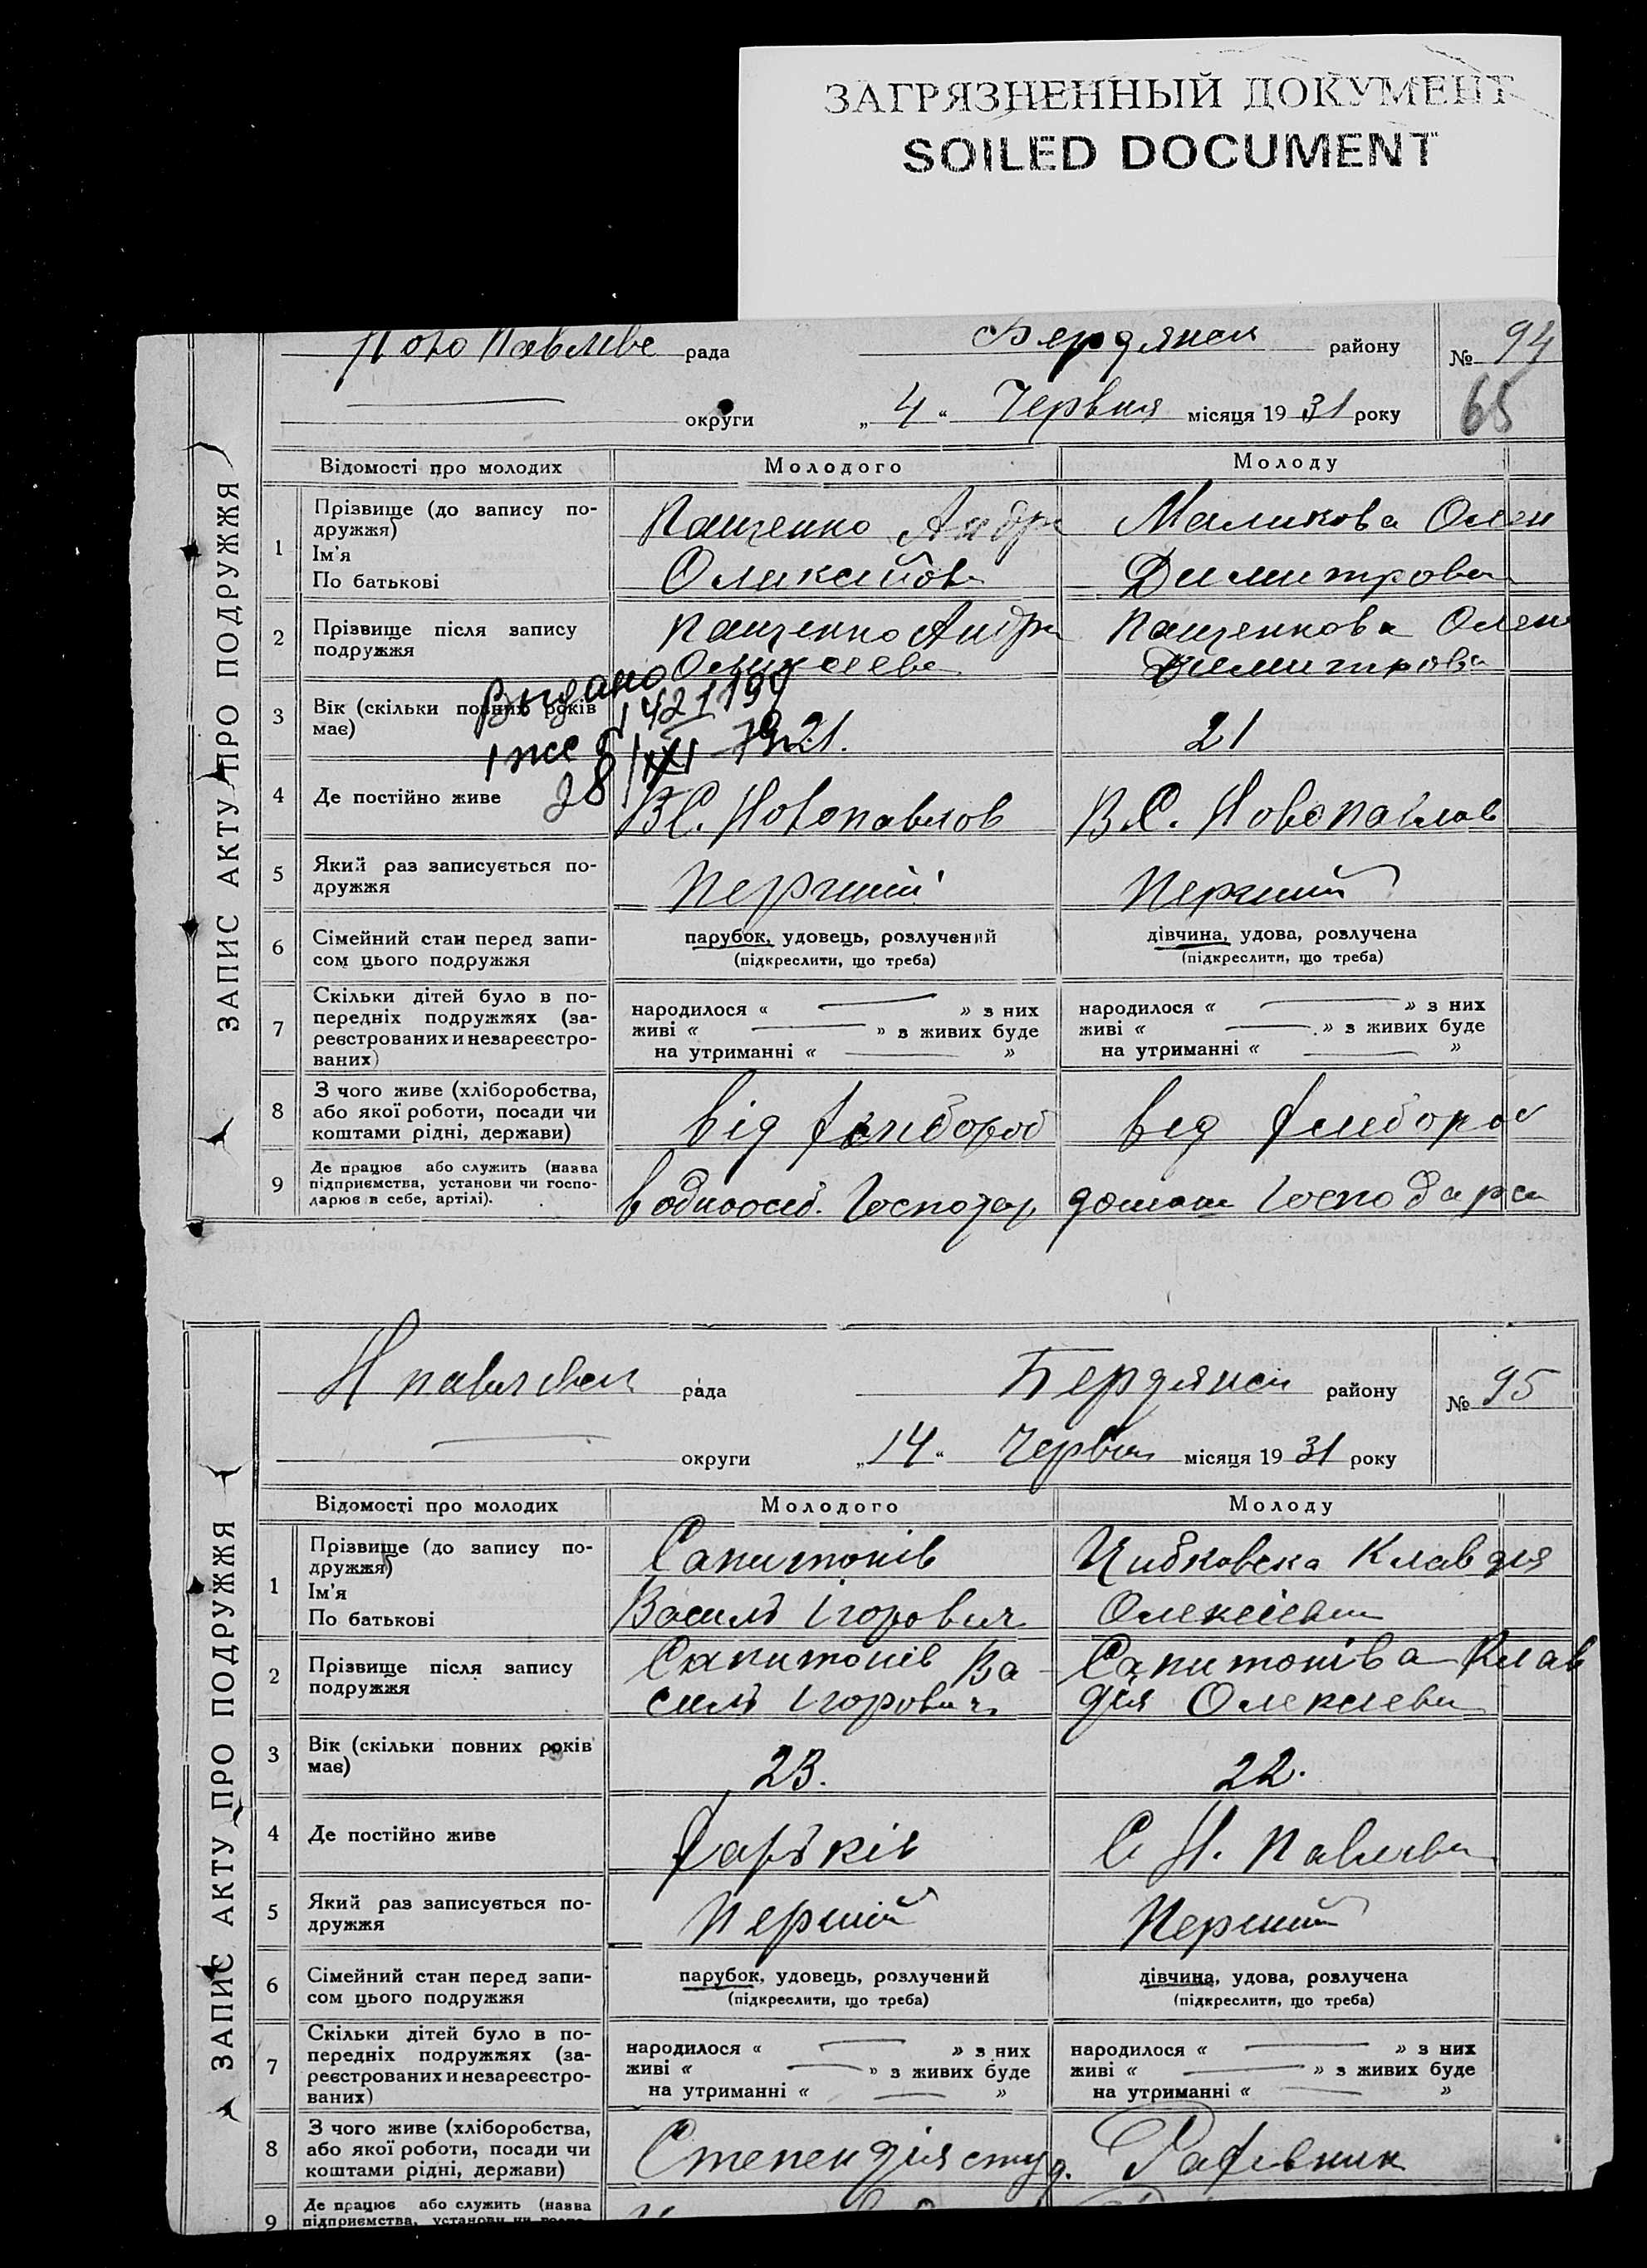 ЗАГРЯЗНЕННЫЙ ДОКУМЕНТ
SOILED DOCUMENT
Ново Павлівс рада Бердянск району № 94
округи „4“ Червня місяця 1931 року 65
ЗАПИС АКТУ ПРО ПОДРУЖЖЯ
Відомості про молодих Молодого Молоду
1 Прізвище (до запису по-
дружжя)
Ім'я
По батькові
Пащенко Андр
Маликова Олен
Димитрова
2 Прізвище після запису
подружжя
Пащенко Андр
Пащенкова Олен
Димитрова
Выдано
3 Вік (скільки повних років
має)
21. 21
4 Де постійно живе
В.С. Новопавлов В.С. Новопавлов
5 Який раз записується по-
дружжя
Перший Перший
6 Сімейний стан перед запи-
сом цього подружжя
парубок, удовець, розлучений
(підкреслити, що треба)
дівчина, удова, розлучена
(підкреслити, що треба)
7 Скільки дітей було в по-
передніх подружжях (за-
реєстрованих и незареєстро-
ваних)
народилося « » з них
живі « » з живих буде
на утриманні « »
народилося « » з них
живі « » з живих буде
на утриманні « »
8 З чого живе (хліборобства,
або якої роботи, посади чи
коштами рідні, держави)
від хлібороб від хлібороб
9 Де працює або служить (назва
підприємства, установи чи госпо-
дарює в себе, артілі).
в одноосіб. Господар домаш Господарси
Н павлівск рада Бердянск району № 95
округи „14“ Червня місяця 1931 року
ЗАПИС АКТУ ПРО ПОДРУЖЖЯ
Відомості про молодих Молодого Молоду
1 Прізвище (до запису по-
дружжя)
Ім'я
По батькові
Сапитонів
Василь Ігорович
Цибковска Клавдія
Олексієвна
2 Прізвище після запису
подружжя
Сапитонів Ва
силь Ігорович
Сапитоніва Клав
дія Олексієвн
3 Вік (скільки повних років
має)
23. 22.
4 Де постійно живе
Харьків С Н. Павлівка
5 Який раз записується по-
дружжя
Перший Перший
6 Сімейний стан перед запи-
сом цього подружжя
парубок, удовець, розлучений
(підкреслити, що треба)
дівчина, удова, розлучена
(підкреслити, що треба)
7 Скільки дітей було в по-
передніх подружжях (за-
реєстрованих и незареєстро-
ваних)
народилося « » з них
живі « » з живих буде
на утриманні « »
народилося « » з них
живі « » з живих буде
на утриманні « »
8 З чого живе (хліборобства,
або якої роботи, посади чи
коштами рідні, держави)
Степендія студ. Рахівник
9 Де працює або служить (назва
підприємства, установи чи